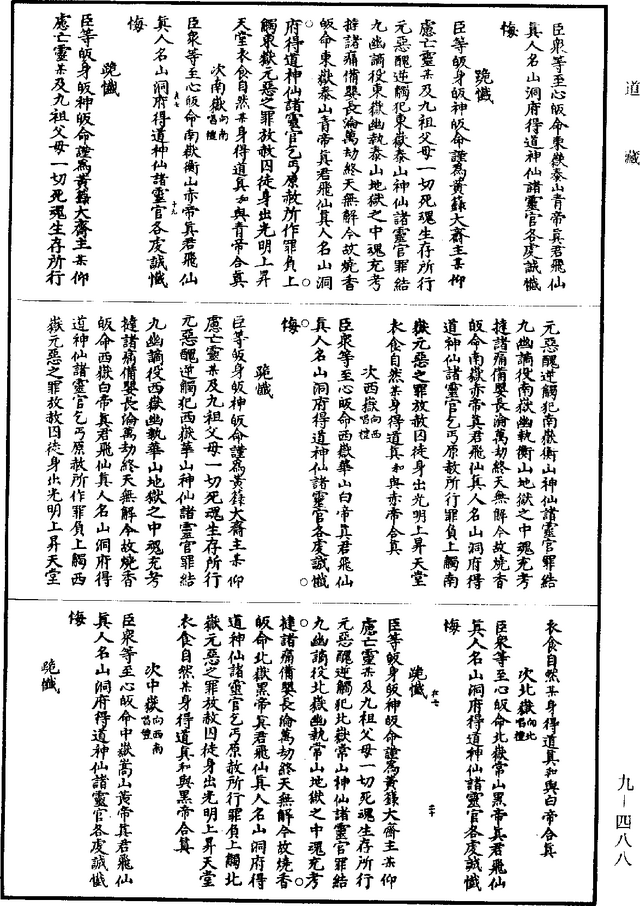 道藏
臣衆等至心皈命東嶽泰山青帝真君飛仙
真人名山洞府得道神仙諸靈官各虔誠懺
悔
跪懺
臣等皈身皈神皈命謹爲黃籙大齋主某仰
慮亡靈某及九祖父母一切死魂生存所行
元惡醜逆觸犯東嶽泰山神仙諸靈官罪結
九幽謫役東嶽幽執泰山地獄之中魂充考
撻諸痛備嬰長淪萬劫終天無解今故燒香
皈命東嶽泰山青帝真君飛仙真人名山洞
府得道神仙諸靈官乞丐原赦所作罪負上
觸東嶽元惡之罪放赦囚徒身出光明上昇
天堂衣食自然某身得道真和與青帝合真
次南嶽向南唱禮
臣衆等至心皈命南嶽衡山赤帝真君飛仙
真人名山洞府得道神仙諸靈官各虔誠懺
悔
衣七 十九
跪懺
臣等皈身皈神皈命謹爲黃籙大齋主某仰
慮亡靈某及九祖父母一切死魂生存所行
元惡醜逆觸犯南嶽衡山神仙諸靈官罪結
九幽謫役南嶽幽執衡山地獄之中魂充考
撻諸痛備嬰長淪萬劫終天無解今故燒香
皈命南嶽赤帝真君飛仙真人名山洞府得
道神仙諸靈官乞丐原赦所行罪負上觸南
嶽元惡之罪放赦囚徒身出光明上昇天堂
衣食自然某身得道真和與赤帝合真
次西嶽向西唱禮
臣衆等至心皈命西嶽華山白帝真君飛仙
真人名山洞府得道神仙諸靈官各虔誠懺
悔
跪懺
臣等皈身皈神皈命謹爲黃籙大齋主某仰
慮亡靈某及九祖父母一切死魂生存所行
元惡醜逆觸犯西嶽華山神仙諸靈官罪結
九幽謫役西嶽幽執華山地獄之中魂充考
撻諸痛備嬰長淪萬劫終天無解今故燒香
皈命西嶽白帝真君飛仙真人名山洞府得
道神仙諸靈官乞丐原赦所作罪負上觸西
嶽元惡之罪放赦囚徒身出光明上昇天堂
衣食自然某身得道真和與白帝合真
次北嶽向北唱禮
臣衆等至心皈命北嶽常山黑帝真君飛仙
真人名山洞府得道神仙諸靈官各虔誠懺
悔
衣七 二十
跪懺
臣等皈身皈神皈命謹爲黃籙大齋主某仰
慮亡靈某及九祖父母一切死魂生存所行
元惡醜逆觸犯北嶽常山神仙諸靈官罪結
九幽謫役北嶽幽執常山地獄之中魂充考
撻諸痛備嬰長淪萬劫終天無解今故燒香
皈命北嶽黑帝真君飛仙真人名山洞府得
道神仙諸靈官乞丐原赦所行罪負上觸北
嶽元惡之罪放赦囚徒身出光明上昇天堂
衣食自然某身得道真和與黑帝合真
次中嶽向西南唱禮
臣衆等至心皈命中嶽嵩山黃帝真君飛仙
真人名山洞府得道神仙諸靈官各虔誠懺
悔
跪懺
九—四八八